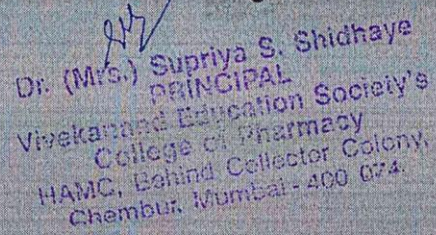 Dr. (Mrs.) Supriya S. Shidhaye
PRINCIPAL
Vivekanand Education Society's
College of Pharmacy
HAMC, Behind Collector Colony,
Chembur, Mumbai - 400 074.